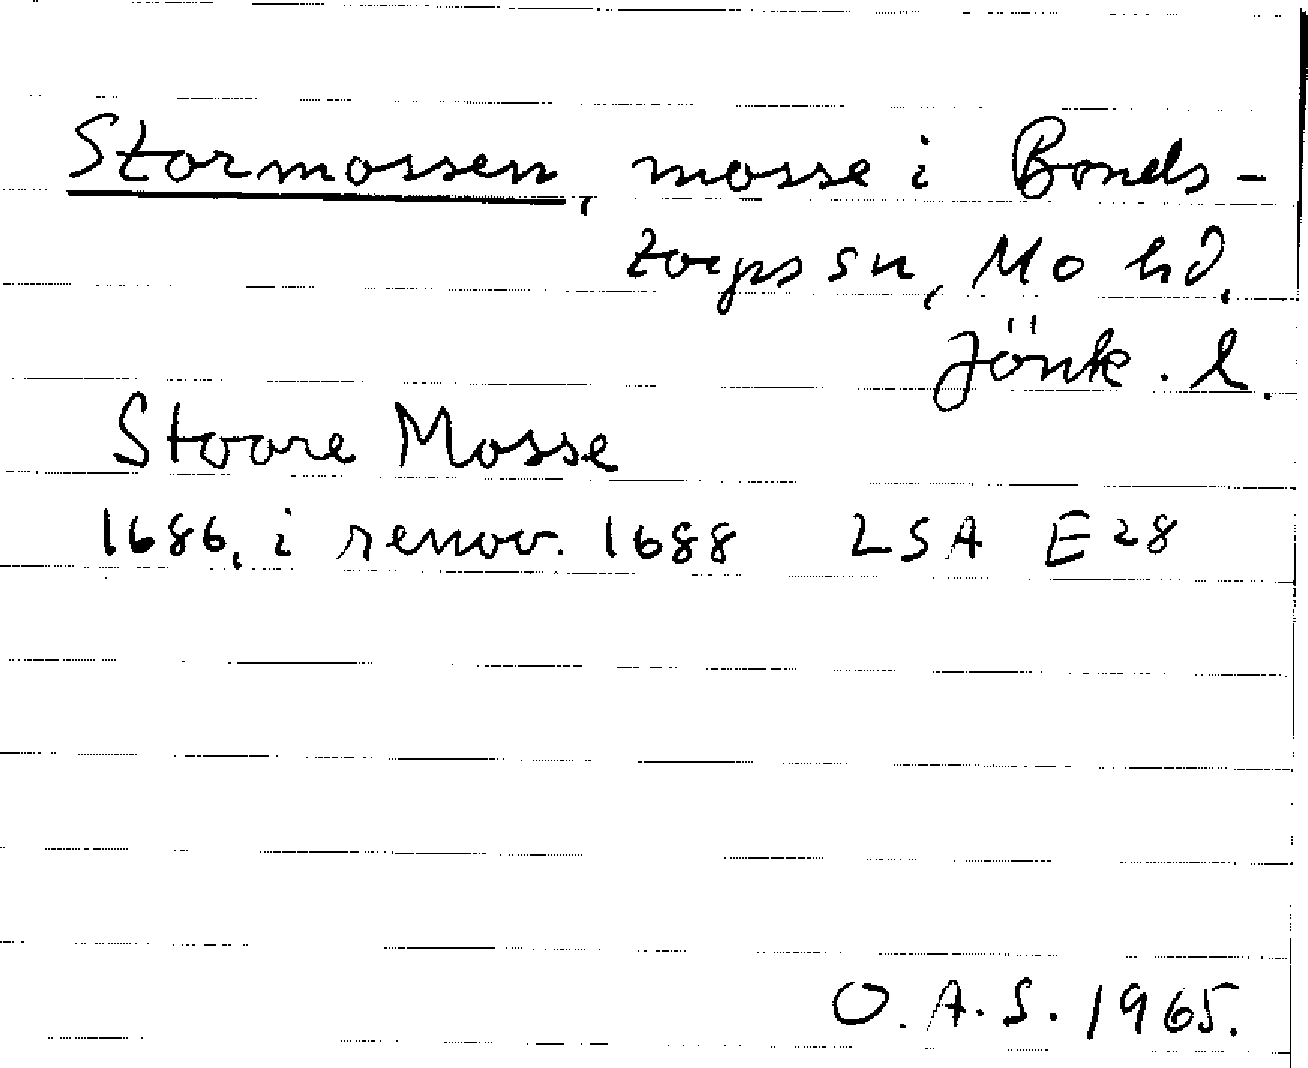 Stormossen, mosse i Bonds-
torps sn, Mo hd.
Jönk. l.
Stoore Mosse
1686, i renov. 1688 LSA E28
O.A.S. 1965.